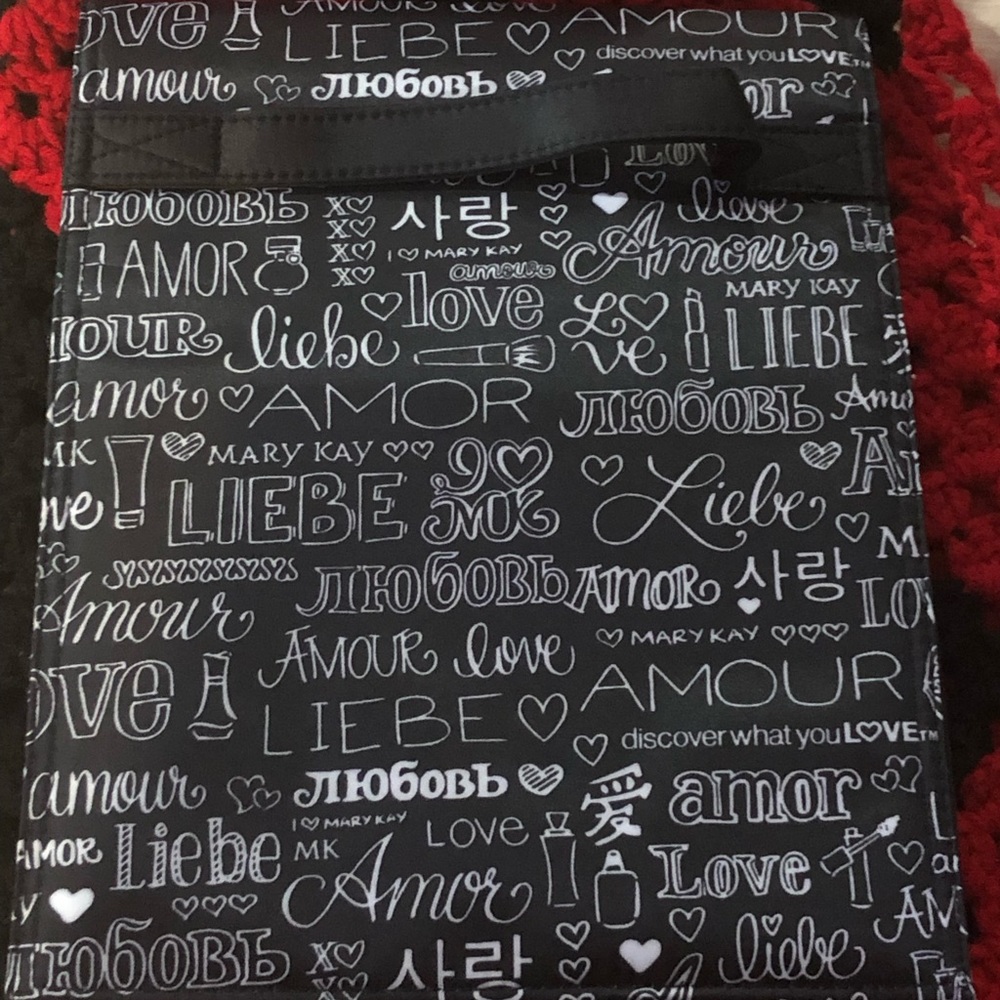 ove AMOUR love AMOUR
LIEBE discover what you LOVE™
amour любовь or
Lov
любовь xo 사랑 liebe
AMOR xo I ♡ MARY KAY Amour
xo amour MARY KAY
OUR liebe love Love LIEBE 爱
amor AMOR любовь Amo
MK MARY KAY
ove LIEBE Liebe
M
Amour любовь AMOR 사랑 LOV
AMOUR love MARY KAY
ove LIEBE AMOUR
discover what you LOVE™
amour любовь 爱 amor
AMOR Liebe I ♡ MARY KAY LOVE
MK Amor Love
y AM
любовь xo 사랑 liebe
xo